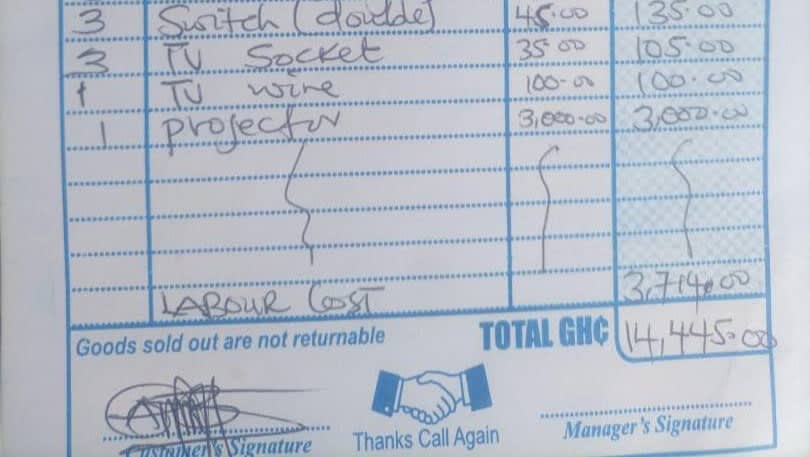 3 Switch (double) 45.00 135.00
3 TV Socket 35.00 105.00
1 TV wire 100.00 100.00
1 projector 3,000.00 3,000.00
LABOUR COST 3,714.00
Goods sold out are not returnable TOTAL GH₵ 14,445.00
Customer's Signature Thanks Call Again Manager's Signature